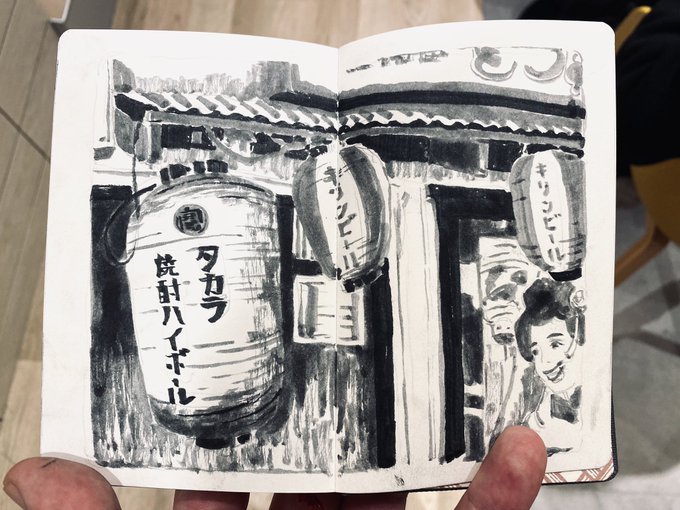 タカラ
焼酎ハイボール
キリンビール
キリンビール